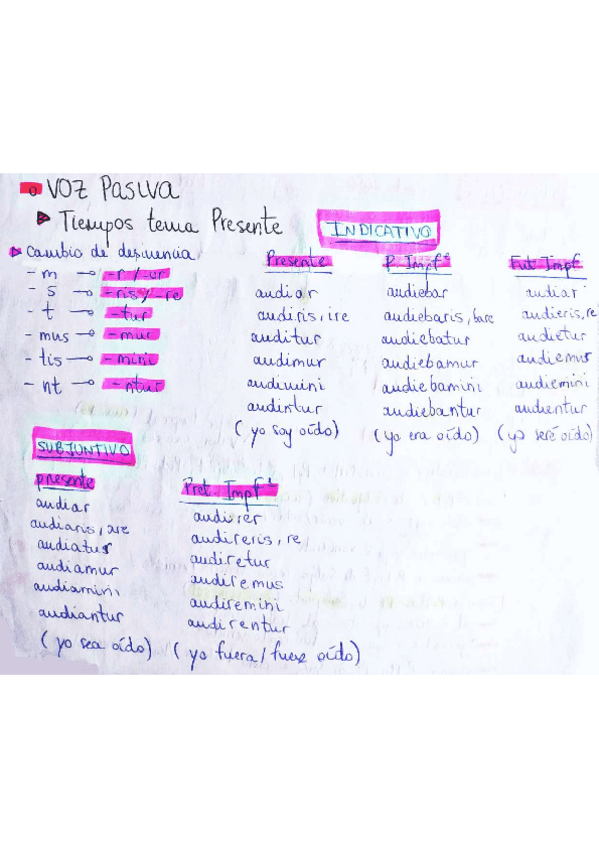 o VOZ Pasiva
Tiempos tema Presente
Cambio de desinencia
- m → -r / -ur
- s → -ris / -re
- t → -tur
- mus → -mur
- tis → -mini
- nt → -ntur
INDICATIVO
Presente
audior
audiris, ire
auditur
audimur
audimini
audintur
(yo soy oído)
P. Impfº
audiebar
audiebaris, bare
audiebatur
audiebamur
audiebamini
audiebantur
(yo era oído)
Fut Impf
audiar
audieris, re
audietur
audiemus
audiemini
audientur
(yo seré oído)
SUBJUNTIVO
presente
audiar
audiaris, are
audiatur
audiamur
audiamini
audiantur
(yo sea oído)
Pret. Impfº
audirer
audireris, re
audiretur
audiremus
audiremini
audirentur
(yo fuera/fuese oído)